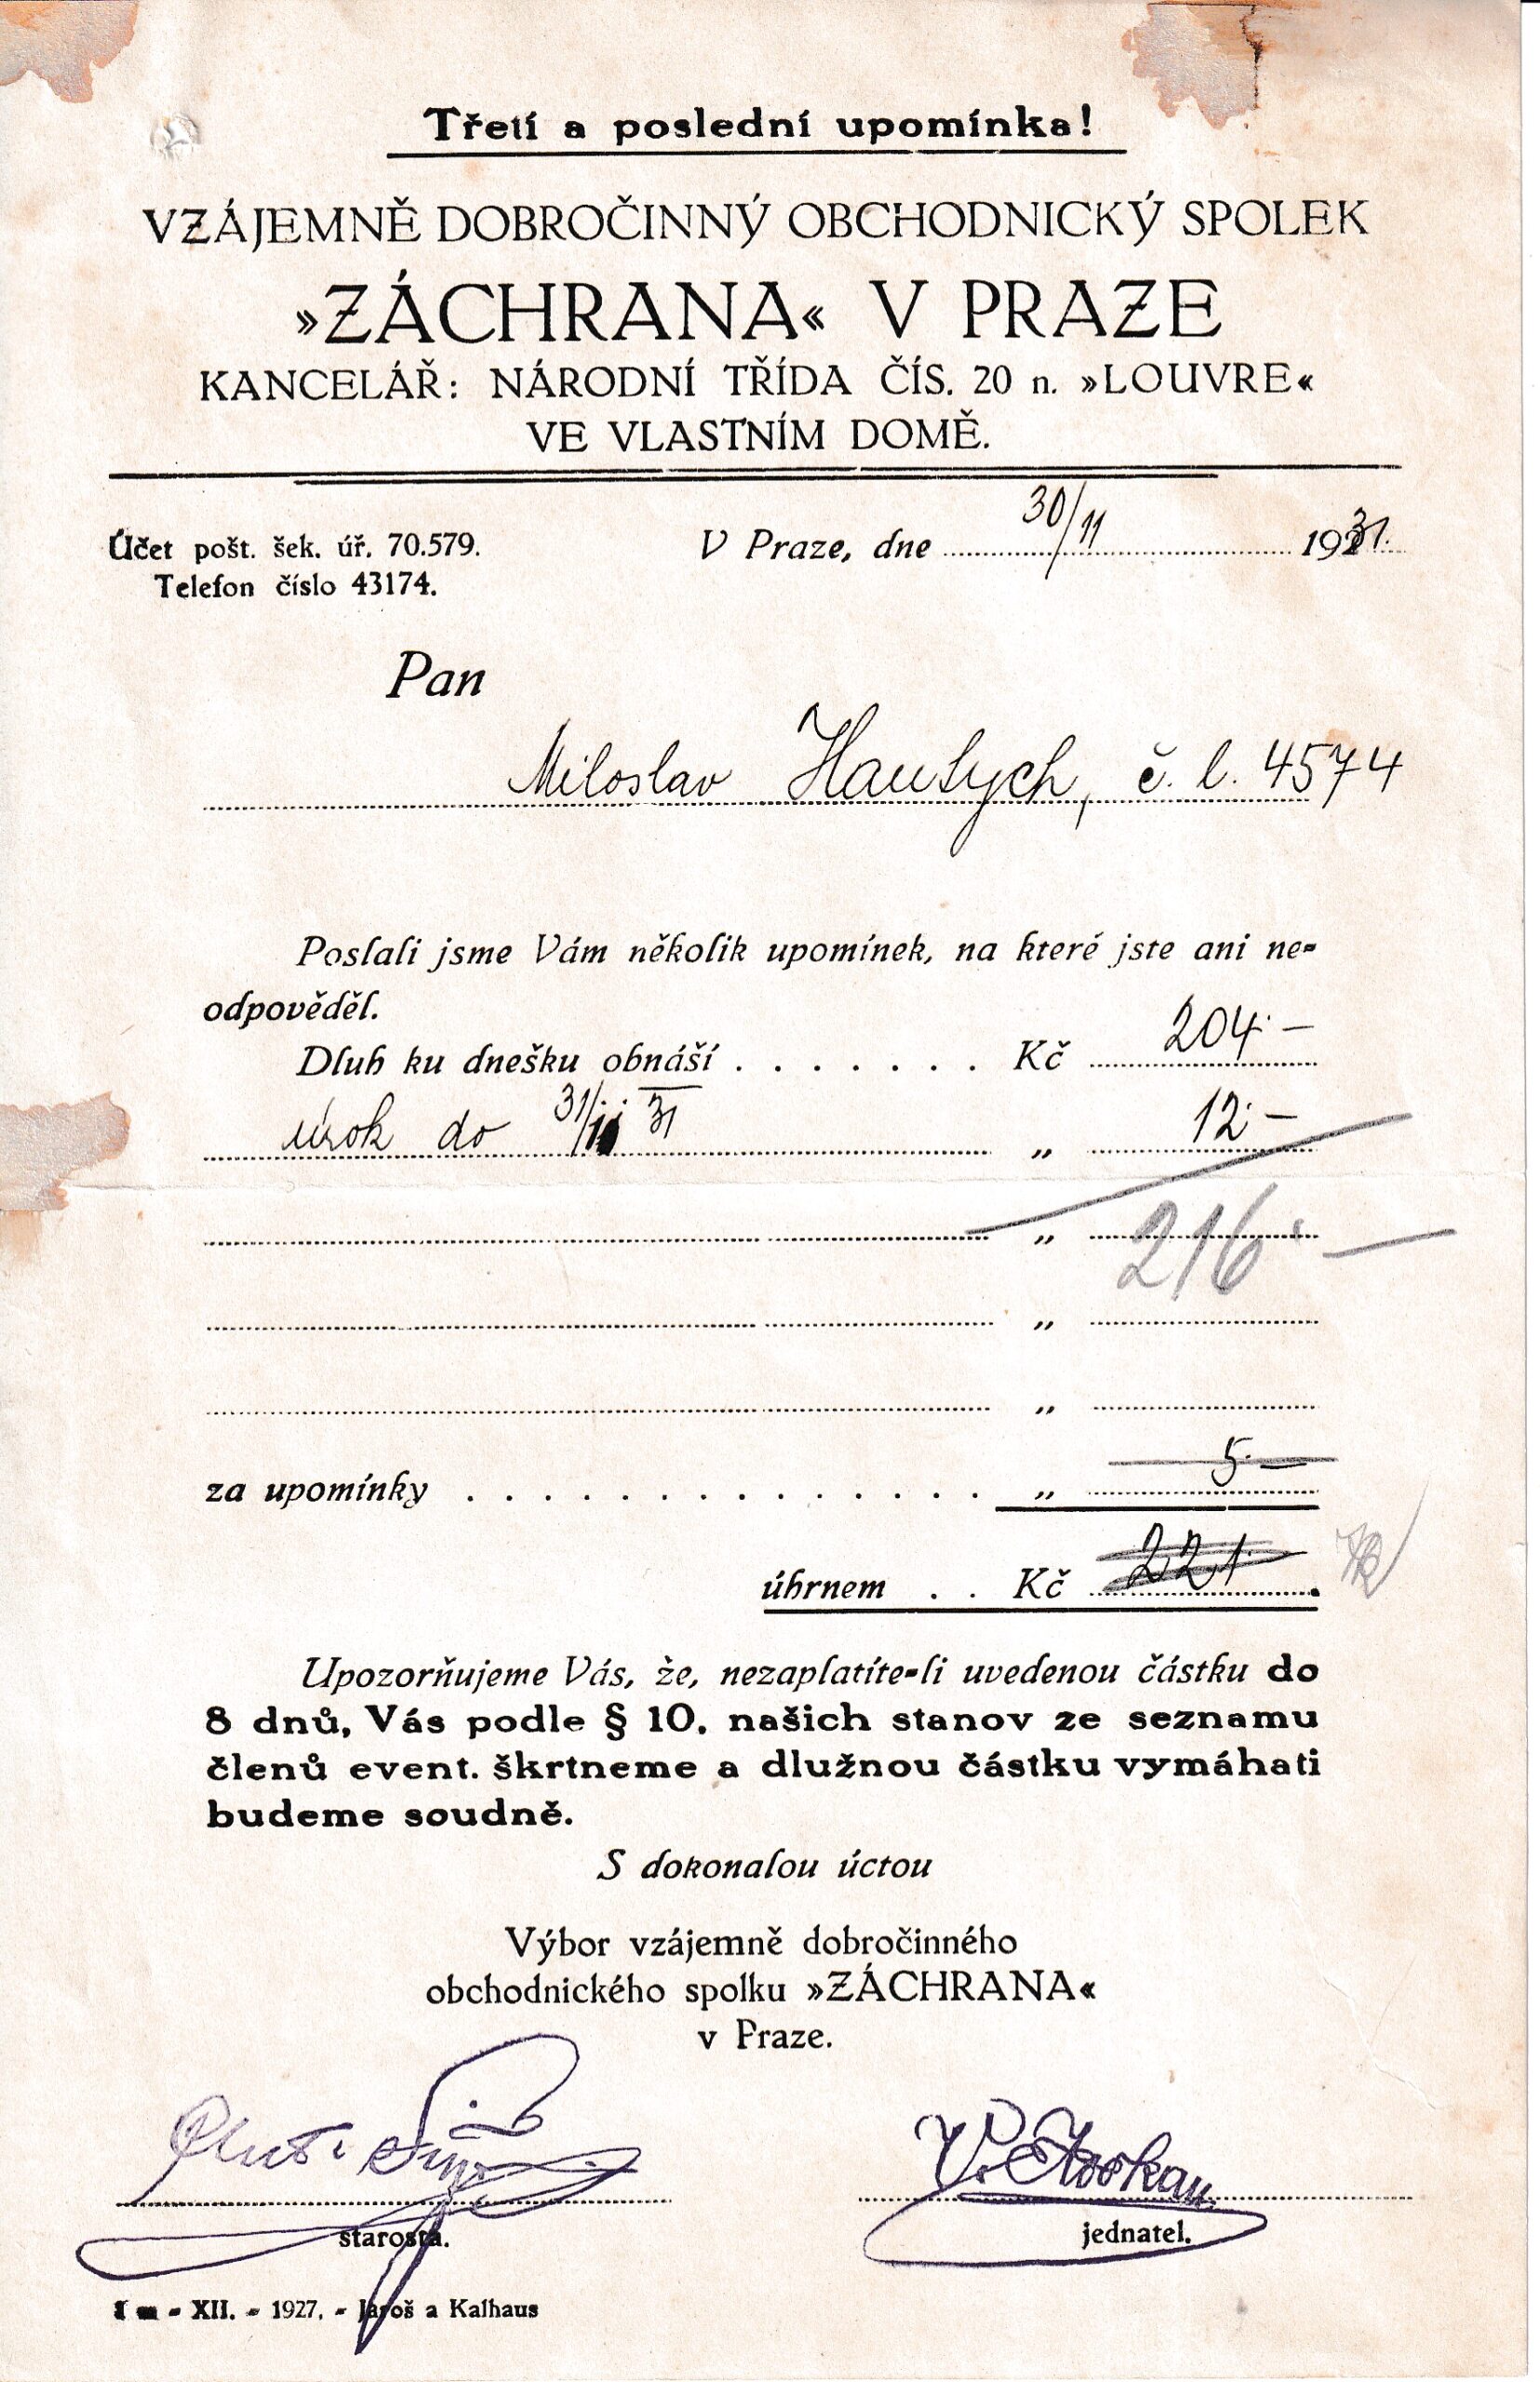 Třetí a poslední upomínka!
VZÁJEMNĚ DOBROČINNÝ OBCHODNICKÝ SPOLEK
»ZÁCHRANA« V PRAZE
KANCELÁŘ: NÁRODNÍ TŘÍDA ČÍS. 20 n. »LOUVRE«
VE VLASTNÍM DOMĚ.
Účet pošt. šek. úř. 70.579.
Telefon číslo 43174.
V Praze, dne 30/11 1931.
Pan
Miloslav č. l. 4574
Poslali jsme Vám několik upomínek, na které jste ani ne-
odpověděl.
Dluh ku dnešku obnáší . . . . . . . Kč 204·–
úrok do 31/ 31 „ 12·–
„ 216·–
„
„
za upomínky . . . . . . . . . . . . . . „ 5·–
úhrnem . . Kč 221·–
Upozorňujeme Vás, že, nezaplatíte-li uvedenou částku do
8 dnů, Vás podle § 10. našich stanov ze seznamu
členů event. škrtneme a dlužnou částku vymáhati
budeme soudně.
S dokonalou úctou
Výbor vzájemně dobročinného
obchodnického spolku »ZÁCHRANA«
v Praze.
starosta.
jednatel.
XII. - 1927. - Jaroš a Kalhaus